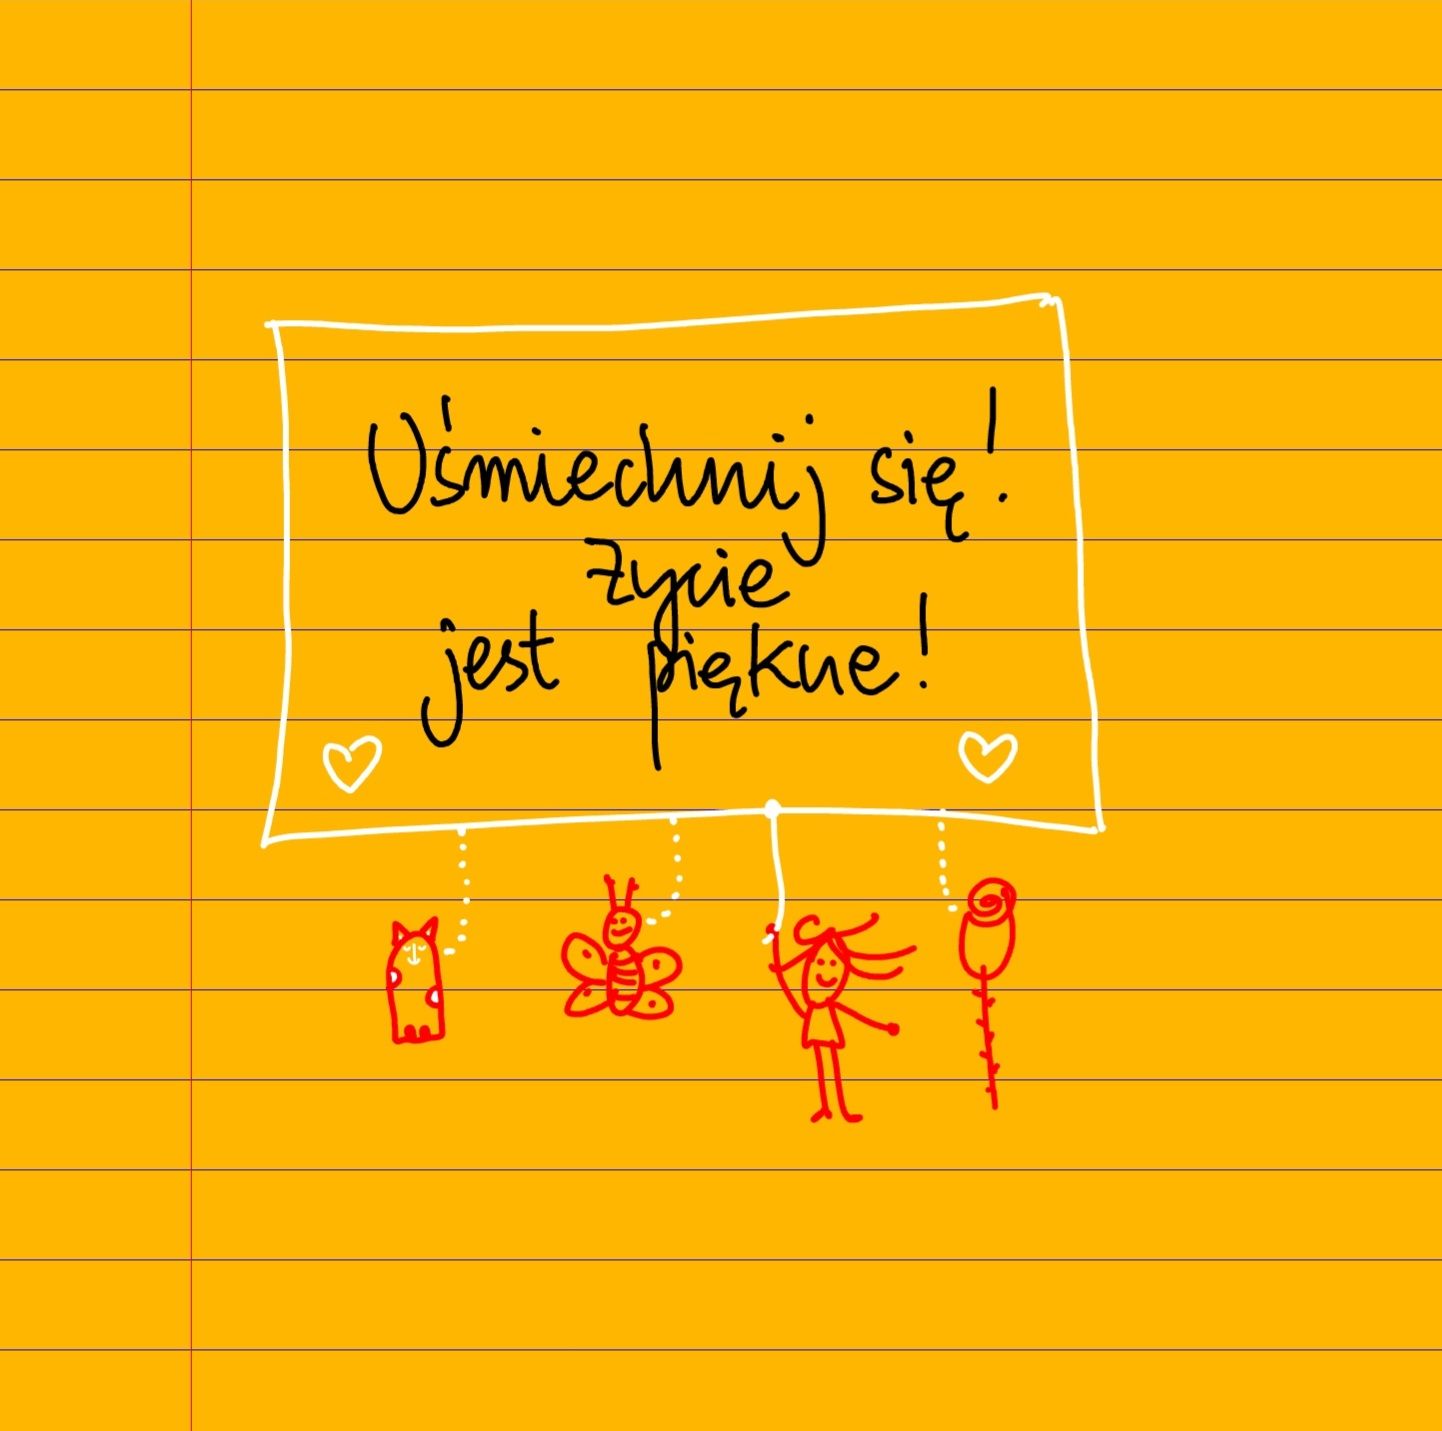 Uśmiechnij się!
życie
jest piękne!